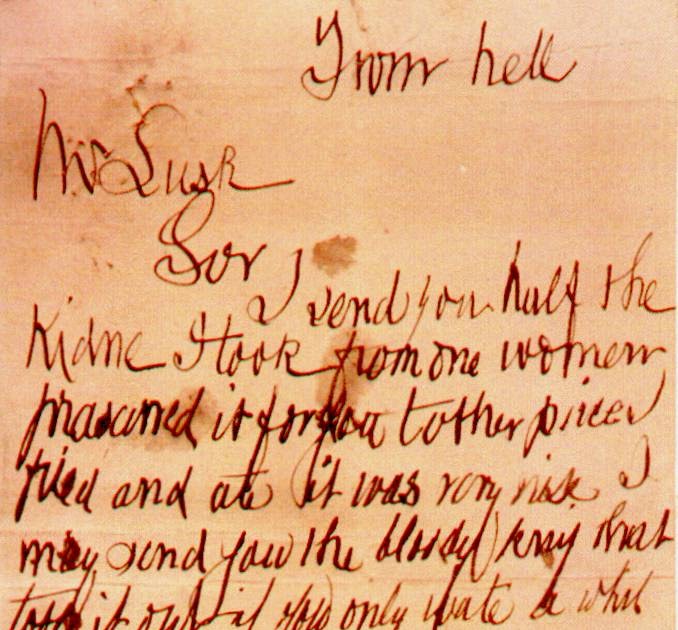 From hell
Mr Lusk
Sor
I send you half the
Kidne I took from one women
prasarved it for you tother piece I
fried and ate it was very nise I
may send you the bloody knif that
took it out if you only wate a whil